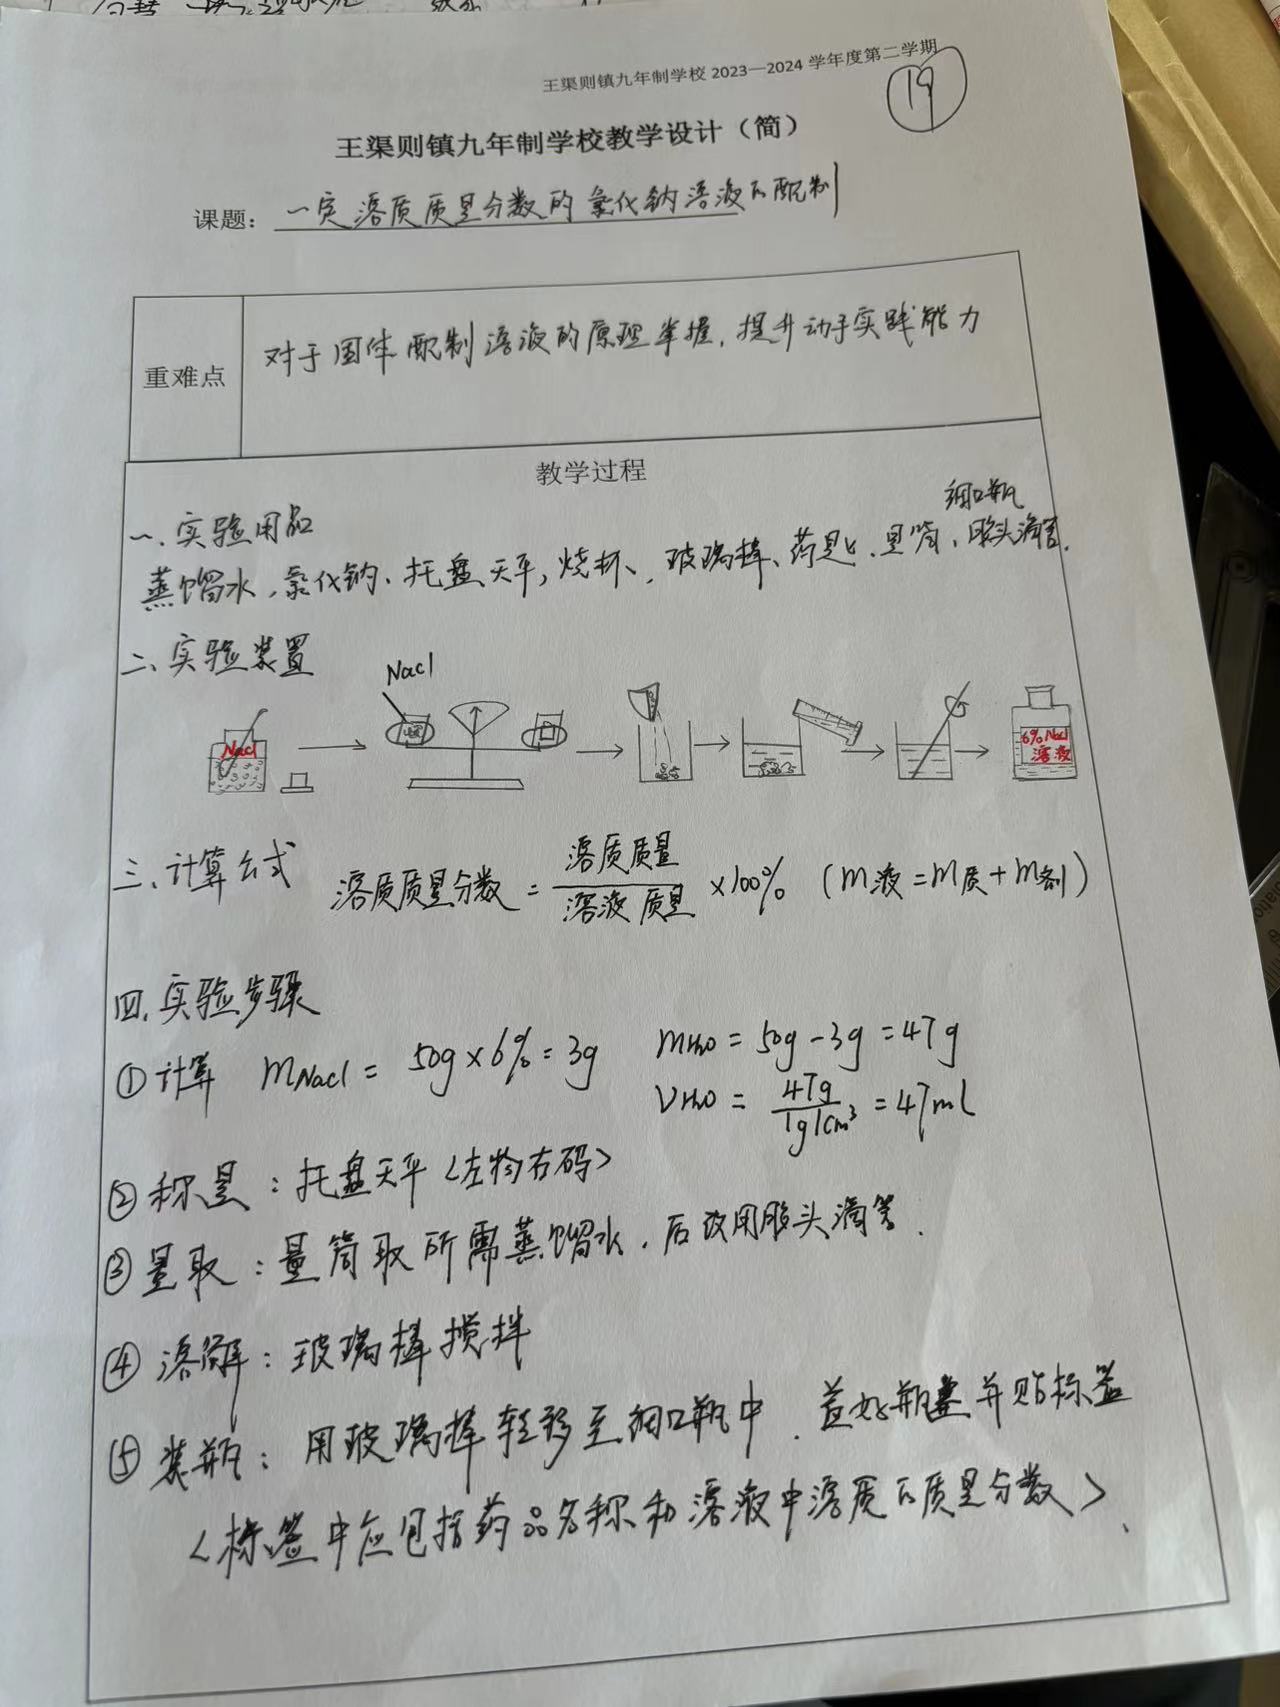 王渠则镇九年制学校 2023—2024 学年度第二学期
19
王渠则镇九年制学校教学设计（简）
课题： 一定溶质质量分数的氯化钠溶液的配制
重难点
对于固体配制溶液的原理掌握，提升动手实践能力
教学过程
一、实验用品
细口瓶
蒸馏水、氯化钠、托盘天平，烧杯、玻璃棒、药匙、量筒、胶头滴管.
二、实验装置
NaCl
NaCl
6% NaCl
溶液
三、计算公式 溶质质量分数 = 溶质质量/溶液质量 ×100% （m液=m质+m剂）
四、实验步骤
①计算 mNaCl = 50g×6% = 3g mH₂O = 50g-3g = 47g
VH₂O = 47g/1g/cm³ = 47ml
②称量：托盘天平<左物右码>
③量取：量筒取所需蒸馏水，后改用胶头滴管.
④溶解：玻璃棒搅拌
⑤装瓶：用玻璃棒转移至细口瓶中、盖好瓶塞并贴标签
<标签中应包括药品名称和溶液中溶质的质量分数>、